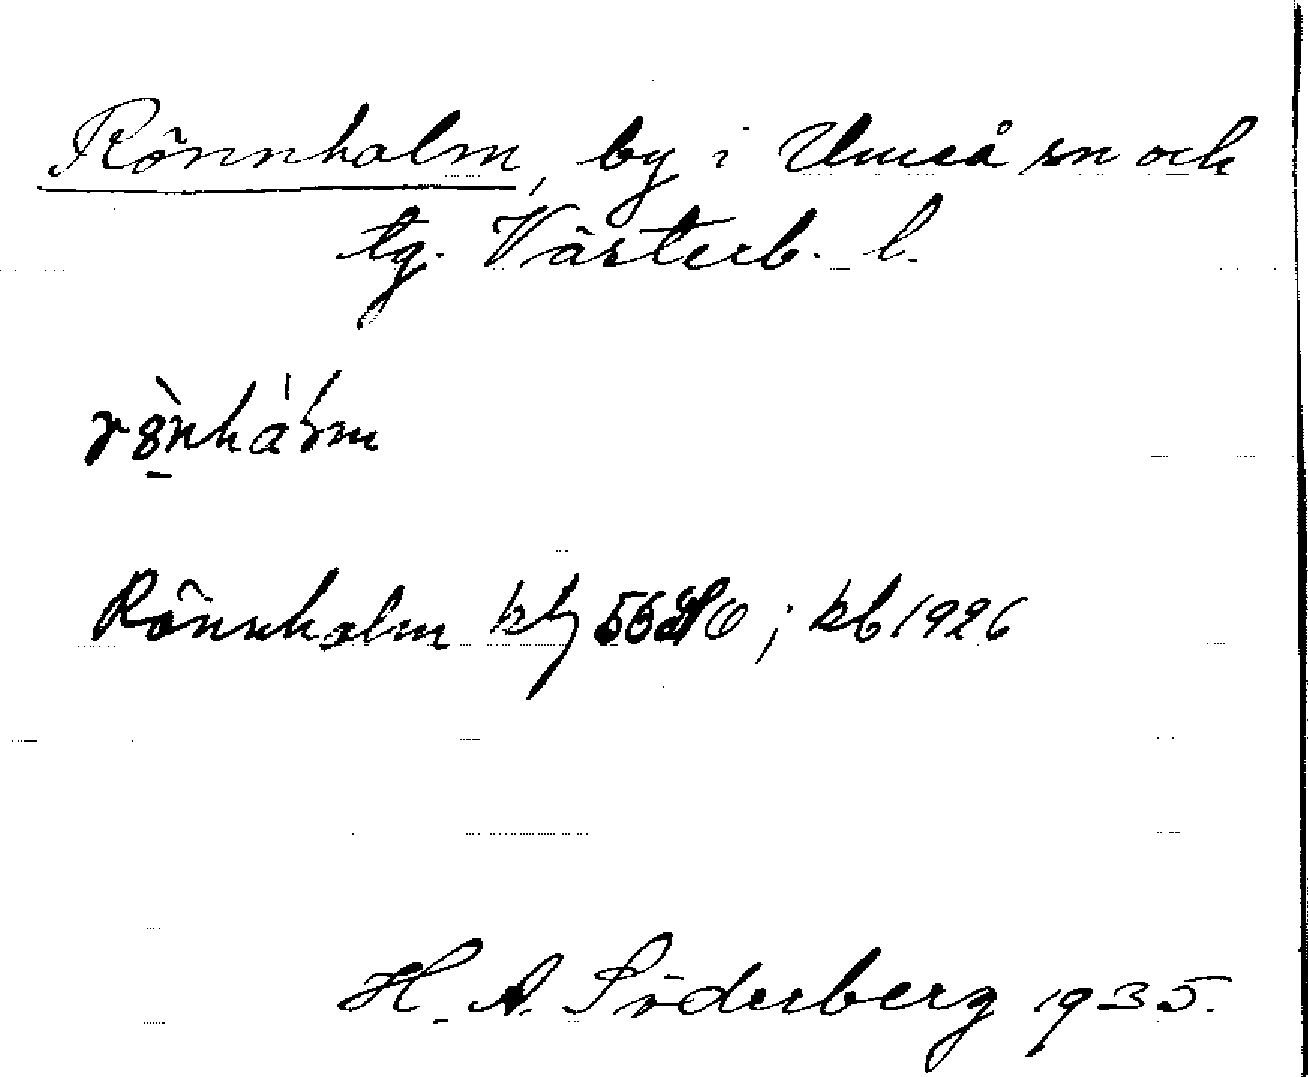 Rönnholm, by i Umeå sn och
tg. Västerb. l.
Rönnholm kbf 56 SO; kb 1926
H. A. Söderberg 1935.